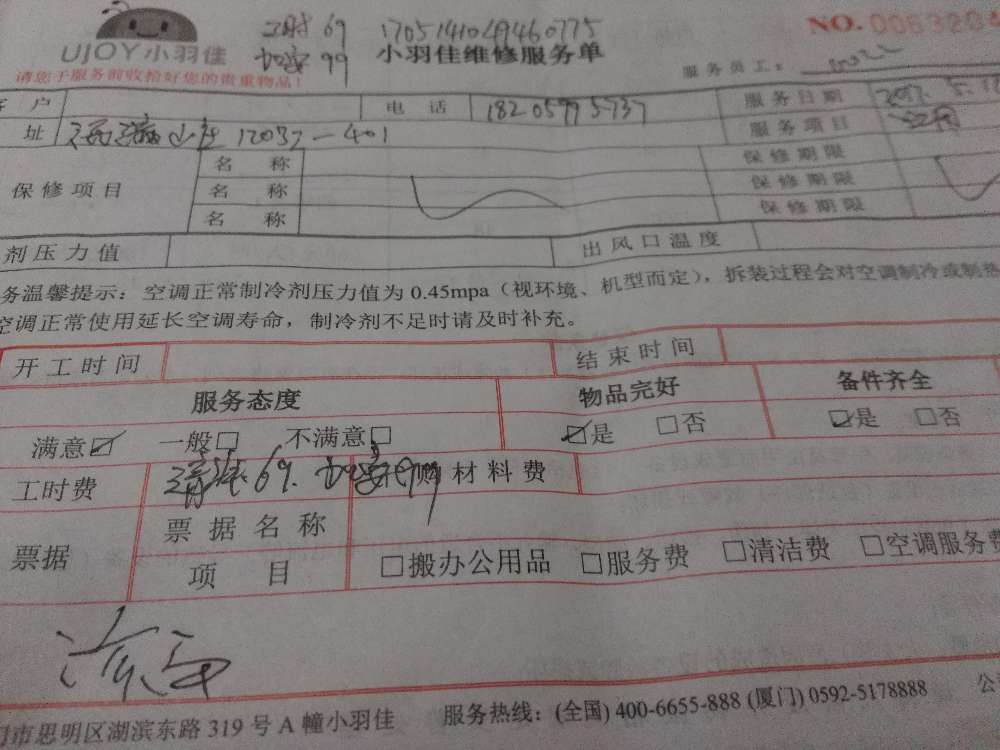 UJOY小羽佳
清洗69 1705141049460775
加氨99 小羽佳维修服务单
NO.0063204
请您于服务前收拾好您的贵重物品!
服务员工:
客户 电话 18205995737 服务日期
址 山庄 12037-401 服务项目 空调
保修项目 名称 保修期限
名称 保修期限
名称 保修期限
剂压力值 出风口温度
务温馨提示:空调正常制冷剂压力值为 0.45mpa(视环境、机型而定),拆装过程会对空调制冷或制热
空调正常使用延长空调寿命,制冷剂不足时请及时补充。
开工时间 结束时间
服务态度 物品完好 备件齐全
满意☑ 一般□ 不满意□ ☑是 □否 ☑是 □否
工时费 清洗69. 购材料费
票据 票据名称
项目 □搬办公用品 □服务费 □清洁费 □空调服务费
门市思明区湖滨东路 319 号 A 幢小羽佳 服务热线:(全国) 400-6655-888 (厦门) 0592-5178888 公